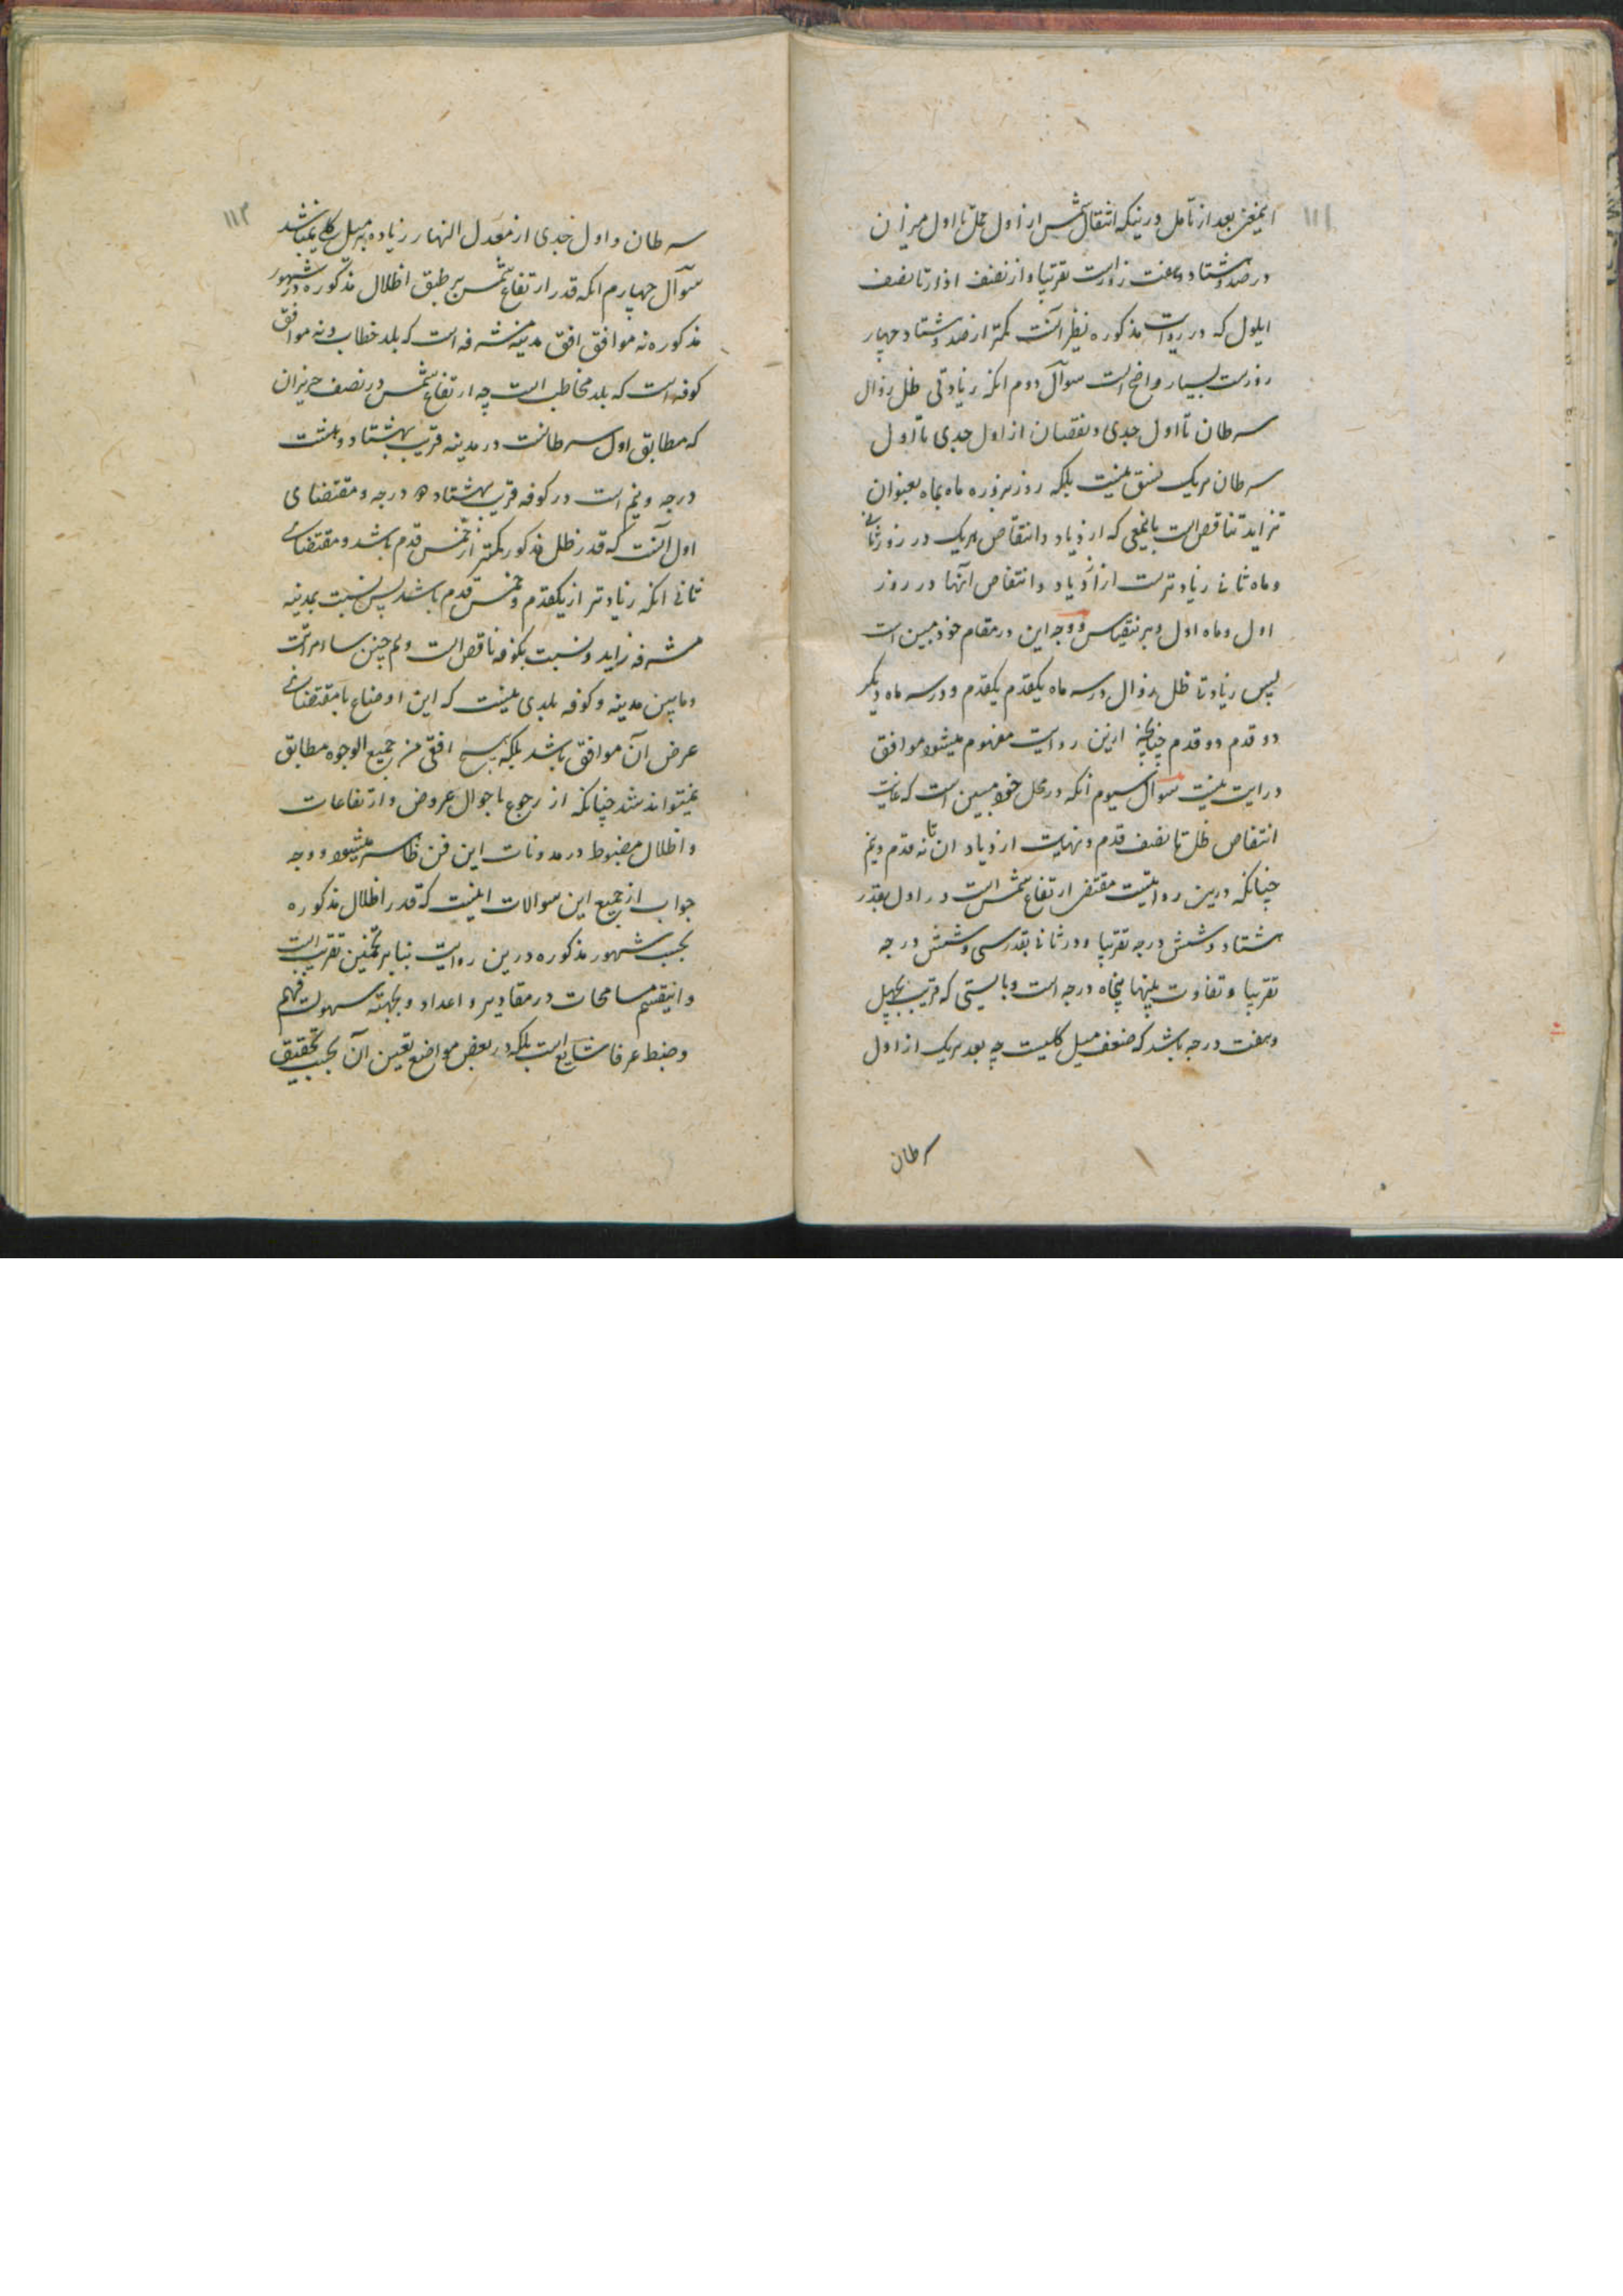 ۱۱۱
اینمعنی بعد از تأمل درینکه انتقال شمس از اول حمل تا اول میزان
در صد و هشتاد و هفت روزست تقریبا و از نصف اذار تا نصف
ایلول که در روایت مذکوره نظیر آنست کمتر از صد و هشتاد چهار
روزست بسیار واضح است سوآل دوم انکه زیادتی ظل زوال
سرطان تا اول جدی و نقصان از اول جدی تا اول
سرطان بریک نسق نیست بلکه روز بروز و ماه بماه بعنوان
تزاید تناقص است باینمعنی که ازدیاد و انتقاص هریک در روز ثانی
و ماه ثانی زیادترست از ازدیاد و انتقاص آنها در روز
اول و ماه اول وبرینقیاس و وجه این در مقام خود مبین است
پس زیادتی ظل زوال در سه ماه یکقدم یکقدم و در سه ماه دیگر
دو قدم دو قدم چنانچه ازین روایت مفهوم میشود موافق
درایت نیست سوآل سیوم انکه در محل خود مبین است که غایت
انتقاص ظل تا نصف قدم و نهایت ازدیاد ان تا نه قدم و نیم
چنانکه درین روایتست مقتضی ارتفاع شمس است در اول بقدر
هشتاد و شش درجه تقریبا و در ثانی بقدر سی و شش درجه
تقریبا و تفاوت بینهما پنجاه درجه است و بایستی که قریب بچهل
و هفت درجه باشد که ضعف میل کلیست چه بعد هریک از اول
سرطان
۱۱۲
سرطان و اول جدی از معدل النهار زیاده بر میل کلی نمیباشد
سوآل چهارم انکه قدر ارتفاع شمس بر طبق اظلال مذکوره در شهور
مذکوره نه موافق افق مدینه مشرفه است که بلد خطاب و نه موافق
کوفه است که بلد مخاطب است چه ارتفاع شمس در نصف حزیران
که مطابق اول سرطانست در مدینه قریب بهشتاد و هشت
درجه و نیم است در کوفه قریب بهشتاد درجه و مقتضای
اول آنست که قدر ظل مذکور کمتر از خمس قدم باشد و مقتضای
ثانی انکه زیادتر از یکقدم و خمس قدم باشد پس نسبت بمدینه
مشرفه زاید و نسبت بکوفه ناقص است و هم چنین سایر مراتب
و مابین مدینه و کوفه بلدی نیست که این اوضاع بامقتضای
عرض آن موافق باشد بلکه هیچ افقی من جمیع الوجوه مطابق
نمیتواند شد چنانکه از رجوع باحوال عروض و ارتفاعات
و اظلال مضبوط در مدونات این فن ظاهر میشود و وجه
جواب از جمیع این سوالات اینست که قدر اظلال مذکوره
بحسب شهور مذکوره درین روایت بنا بر تخمین تقریب است
و اینقسم مسامحات در مقادیر و اعداد و بجهته سهولت فهم
و ضبط عرفا شایع است بلکه در بعض مواضع تعیین آن بحسب تحقیق